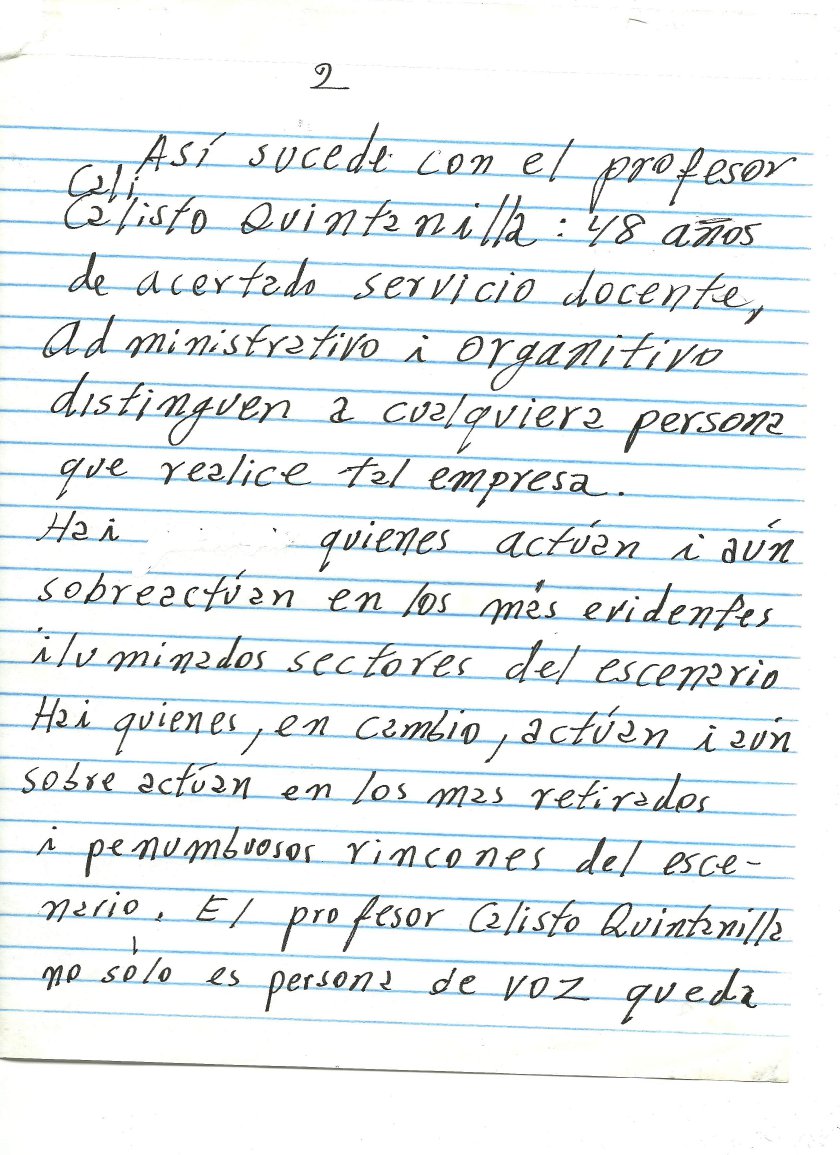 2
Así sucede con el profesor
Cali
Calisto Quintanilla : 48 años
de acertado servicio docente,
administrativo i organitivo
distinguen a cualquiera persona
que realice tal empresa.
Hai quienes actúan i aún
sobreactúan en los más evidentes
iluminados sectores del escenario
Hai quienes, en cambio, actúan i aún
sobre actúan en los mas retirados
i penumbuosos rincones del esce-
nario. El profesor Calisto Quintanilla
no sólo es persona de voz queda